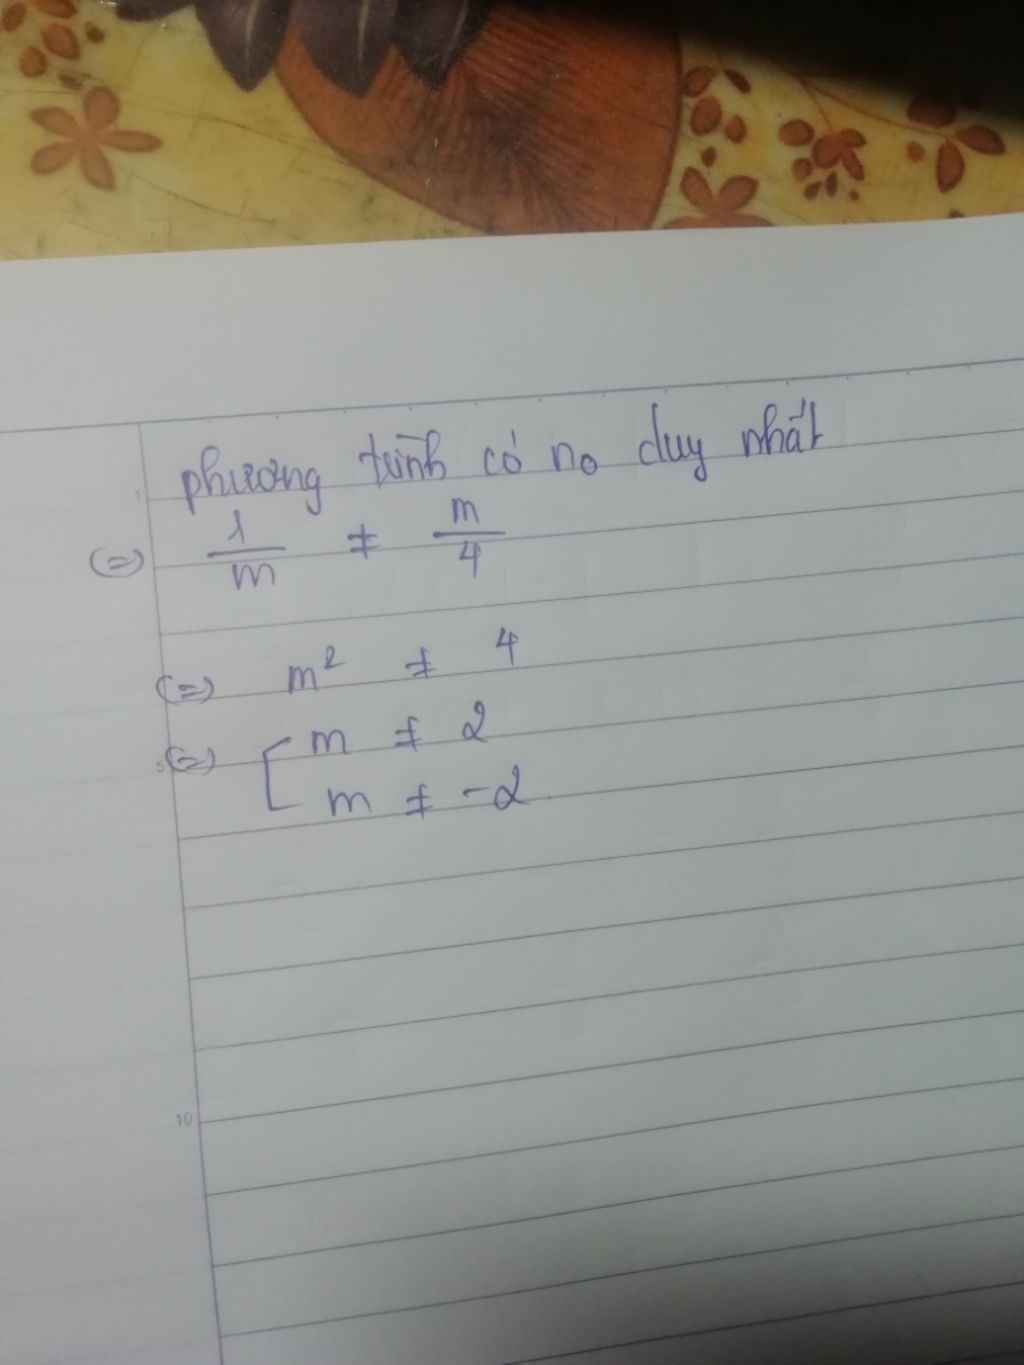 phương trình có no duy nhất
(=) 1/m ≠ m/4
(=) m² ≠ 4
(=) [ m ≠ 2
m ≠ -2
1
5
10